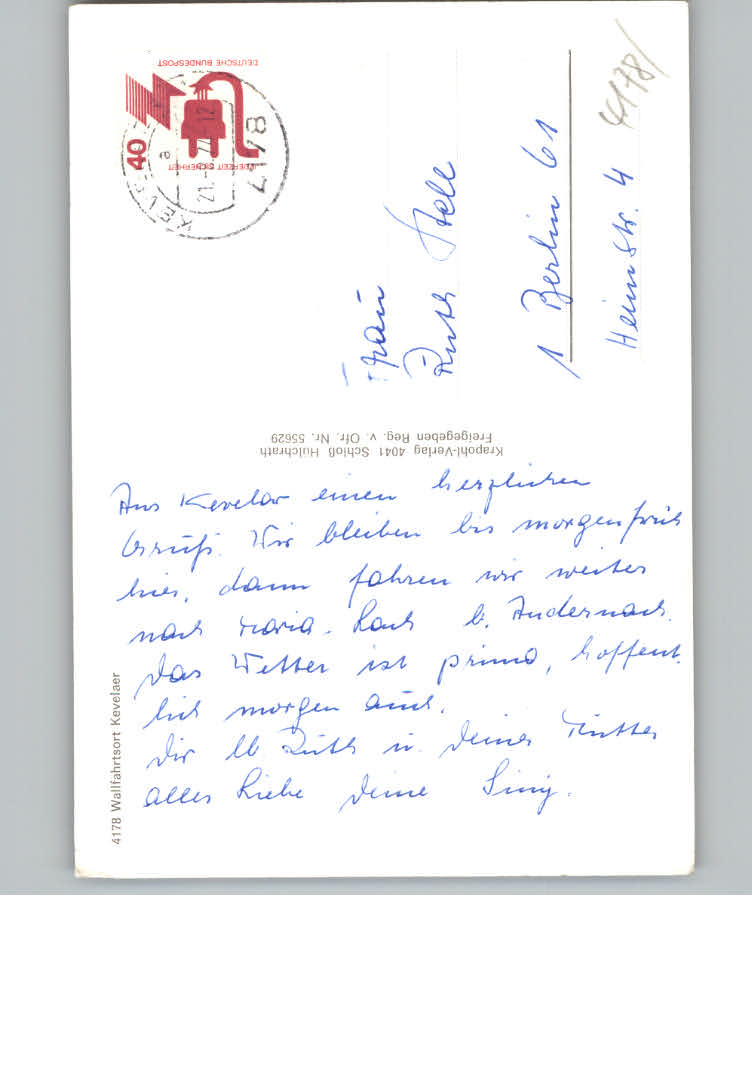 Aus Kevelar einen herzlichen
Gruß. Wir bleiben bis morgen früh
hier, dann fahren wir weiter
nach Maria-Lach b. Andernach.
Das Wetter ist prima, hoffent-
lich morgen auch.
Dir lb Ruth u. Deiner Mutter
alles Liebe Deine
4178 Wallfahrtsort Kevelaer
Krapohl-Verlag 4041 Schloß Hülchrath
Freigegeben Reg. v. Ofr. Nr. 55629
Frau
Ruth Stelle
1 Berlin 61
Heimstr. 4
4178/
DEUTSCHE BUNDESPOST
40
JEDERZEIT SICHERHEIT
4178 KEVE
a